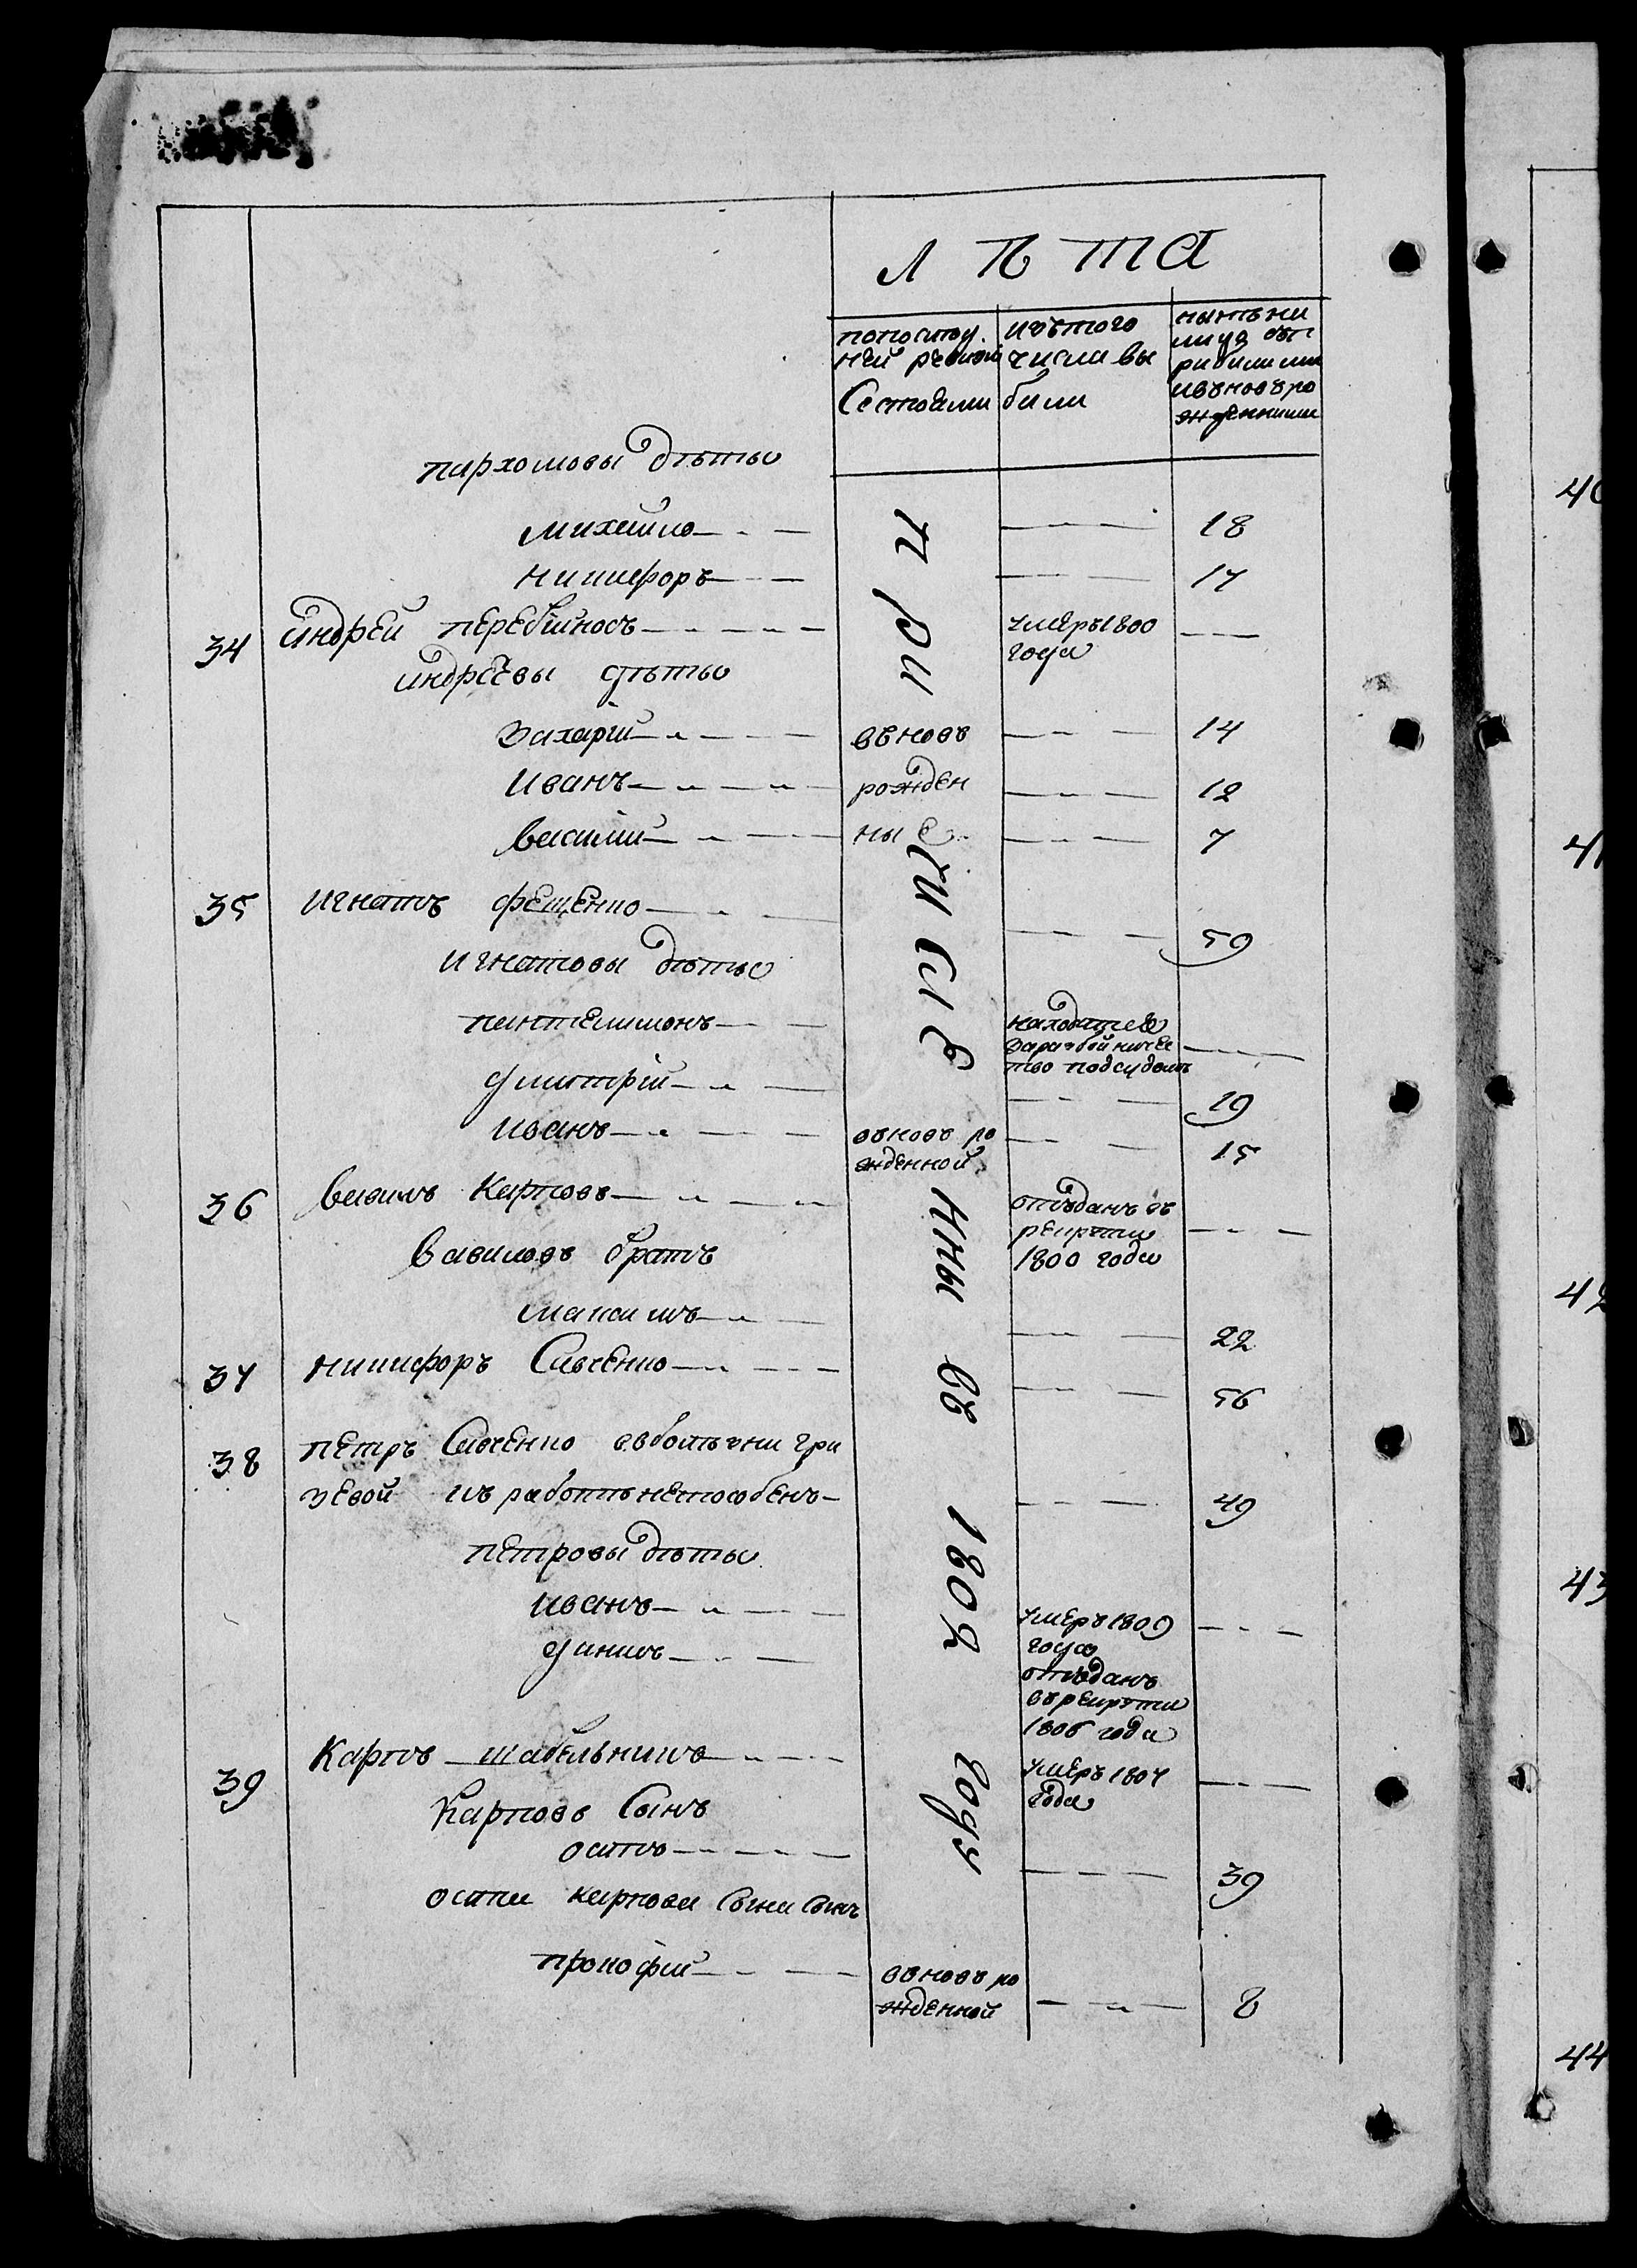 лѣта
попослед.
ней ревизіи
Состояли
изъ того
числа вы
были
нынѣ на
лицо съ п
рибылими
и вновь ро
жденними
пархомовы дѣти
михайло 18
никифоръ 17
34 андрей перебийносъ умеръ 1800
года
андреевы дѣти
захарій вновь 14
иванъ рожден 12
василій ные 7
35 игнатъ фещенко 59
игнатовы дѣти
пантелимонъ находится
за разбойничес
тво подсудомъ
дмитрій 19
иванъ вновь ро
жденной 15
36 вавилъ карповъ отъданъ въ
рекруты
1800 года
вавиловъ братъ
максимъ 22
37 никифоръ Савченко 56
38 петръ Савченко вболѣзни гри
зевой къ работѣ неспособенъ 49
петровы дѣти
иванъ умеръ 1809
года
данило отъданъ
въ рекруты
1806 года
39 карпъ шабельникъ умеръ 1807
года
карповъ Сынъ
осипъ 39
осипа карпова Сына Сынъ
прокофій вновь ро
жденной 8
при
числе
нны
въ
1802
году
40
41
42
43
44